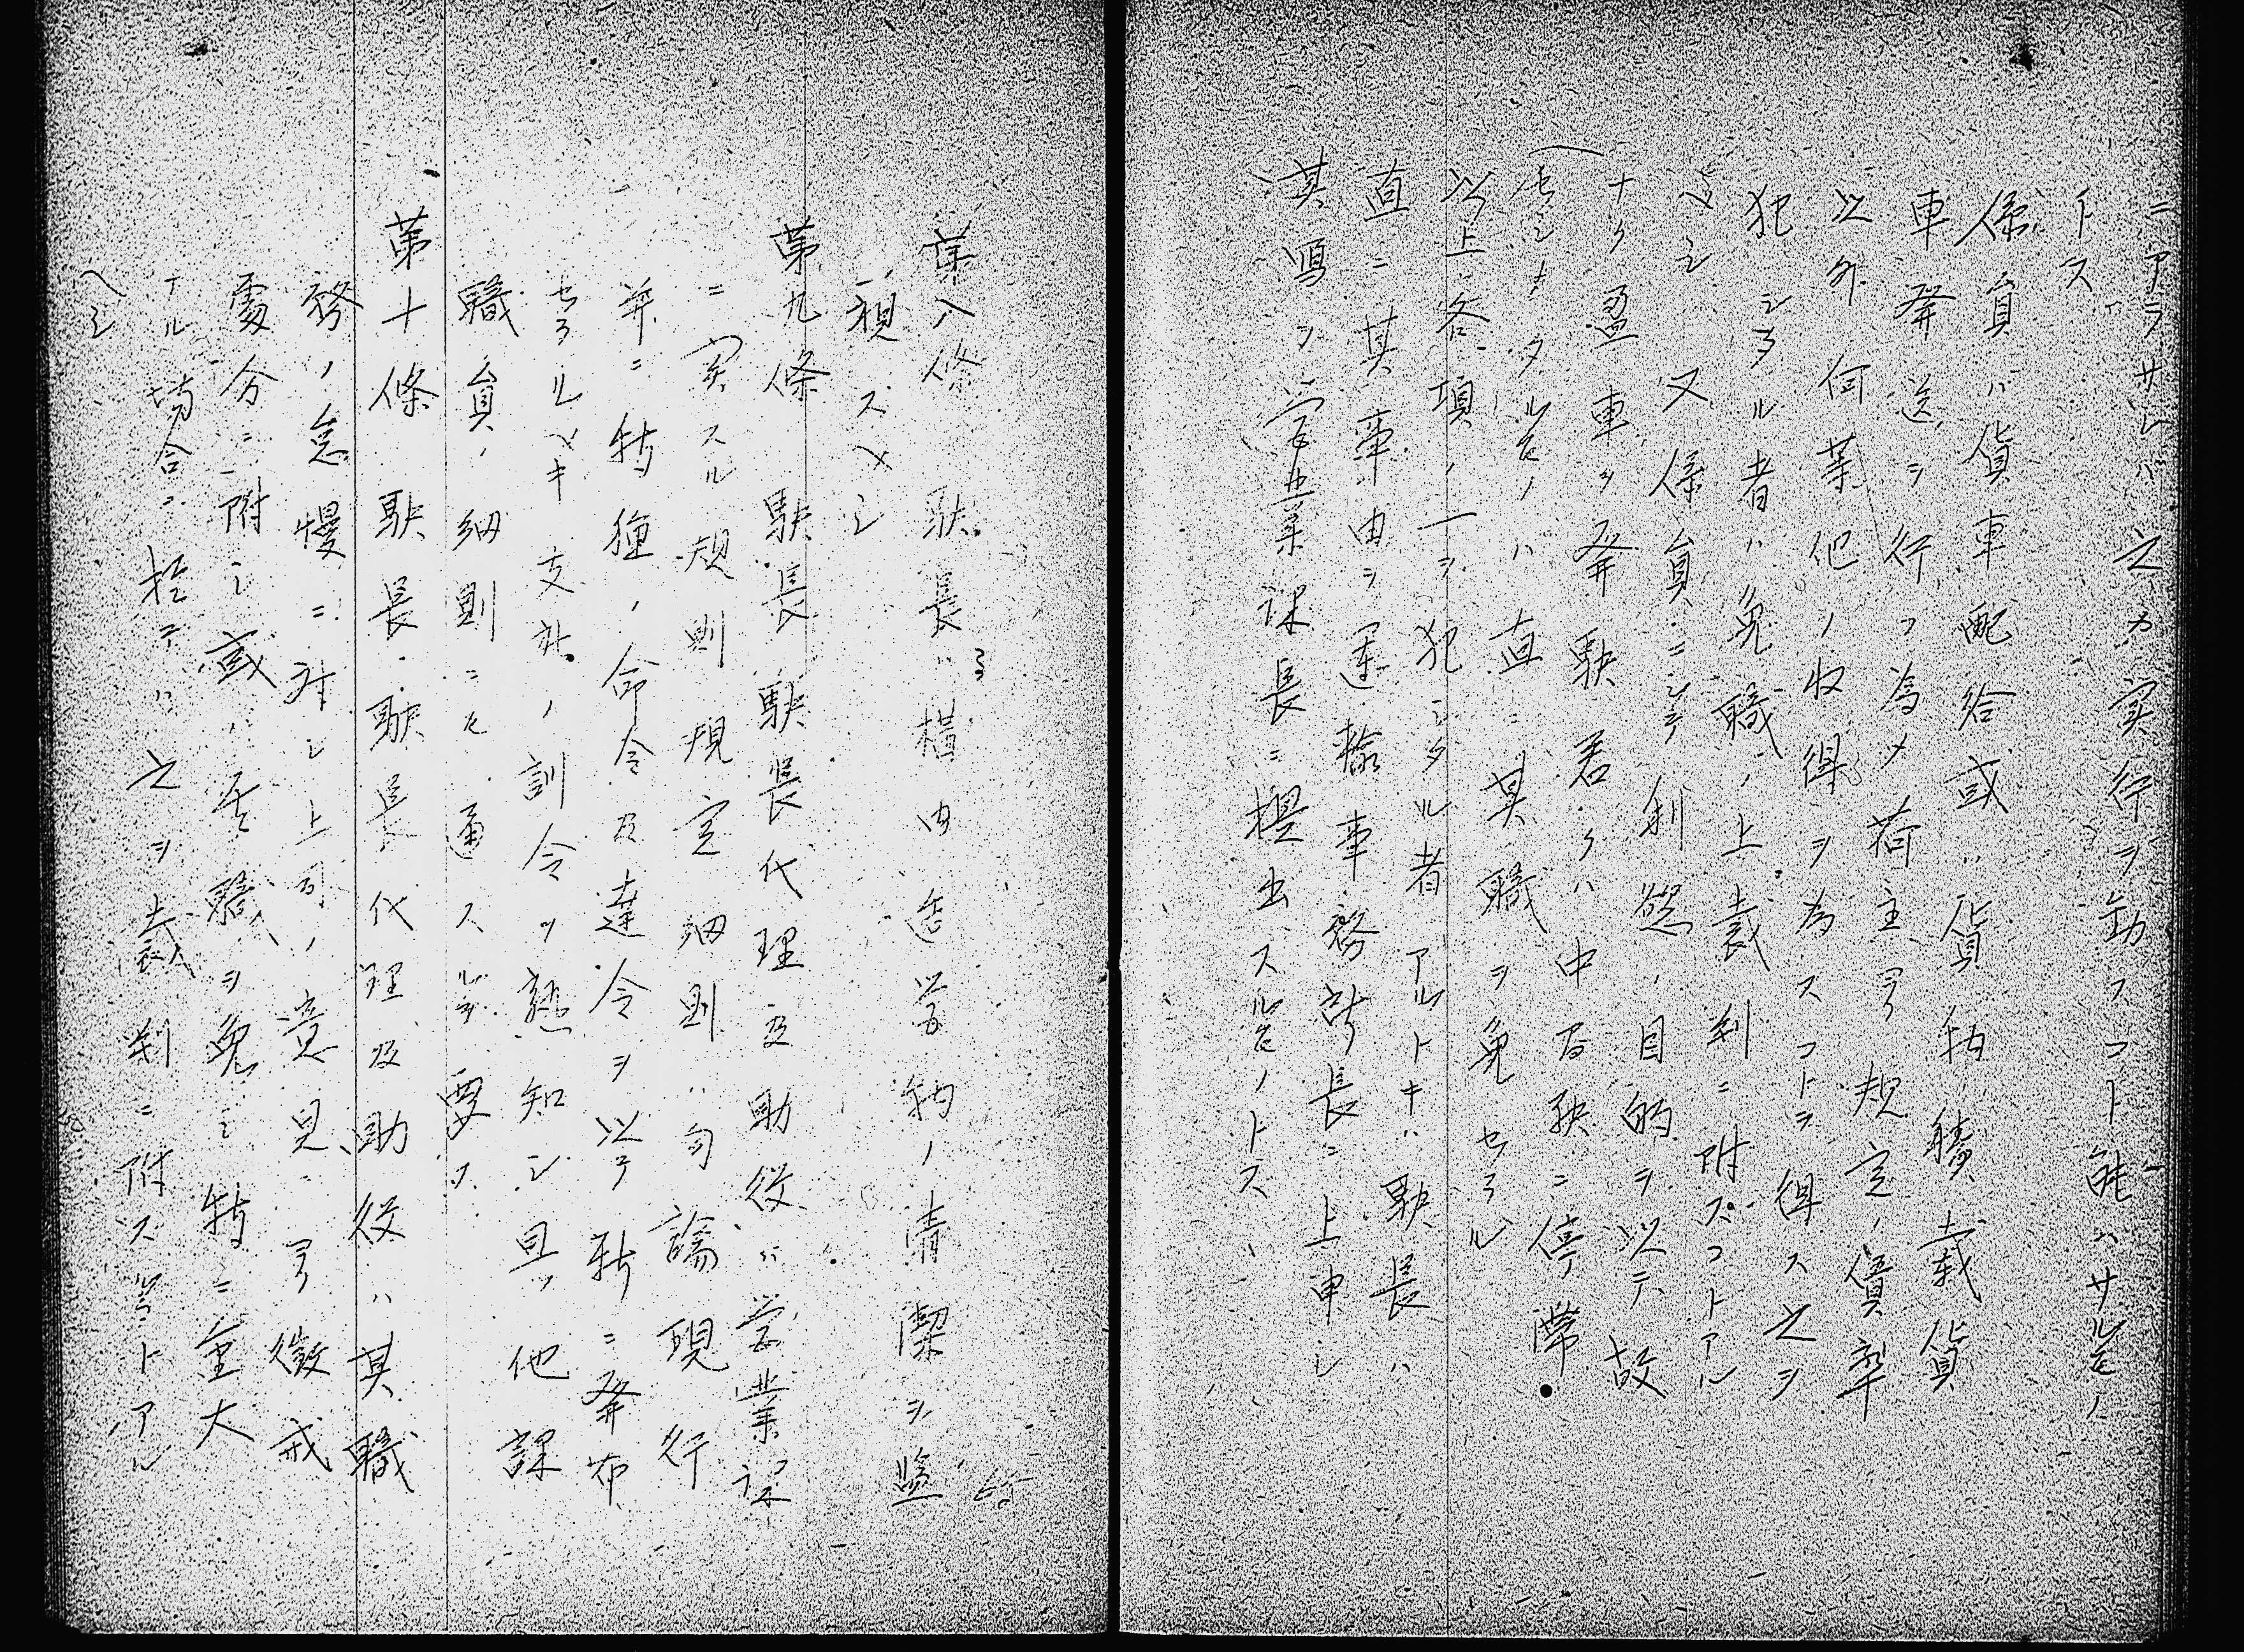 ニアラサレハ之カ実行ヲ勤スコト能ハサルモノ
トス
係員ハ貨車配給或ハ貨物積載貨
車発送ヲ行フ為メ荷主ヨリ規定ノ賃率
以外何等他ノ収得ヲ為スコトヲ得ス之ヲ
犯シタル者ハ免職ノ上裁判ニ附スコトアル
ヘシ又係員ニシテ利慾ノ目的ヲ以テ故
ナク盈車ヲ発駅若クハ中間駅ニ停滞
セシメタルモノハ直ニ其職ヲ免セラル
以上各項ノ一ヲ犯シタル者アルトキハ駅長ハ
直ニ其事由ヲ運輸事務所長ニ上申シ
其写ヲ営業課長ニ提出スルモノトス
第八條 駅長ハ構内建築物ノ清潔ヲ監
視スヘシ
第九條 駅長駅長代理及助役ハ営業課
ニ関スル規則規定細則ハ勿論現行
並ニ特種ノ命令及達令ヲ以テ新ニ発布
セラルヘキ支社ノ訓令ヲ熟知シ且ツ他課
職員ノ細則ニモ通スルヲ要ス
第十條 駅長駅長代理及助役ハ其職
務ノ怠慢ニ対シ上司ノ意見ヨリ懲戒
処分ニ附シ或ハ其職ヲ免シ特ニ重大
ナル場合ニ於テハ之ヲ裁判ニ附スルコトアル
ヘシ